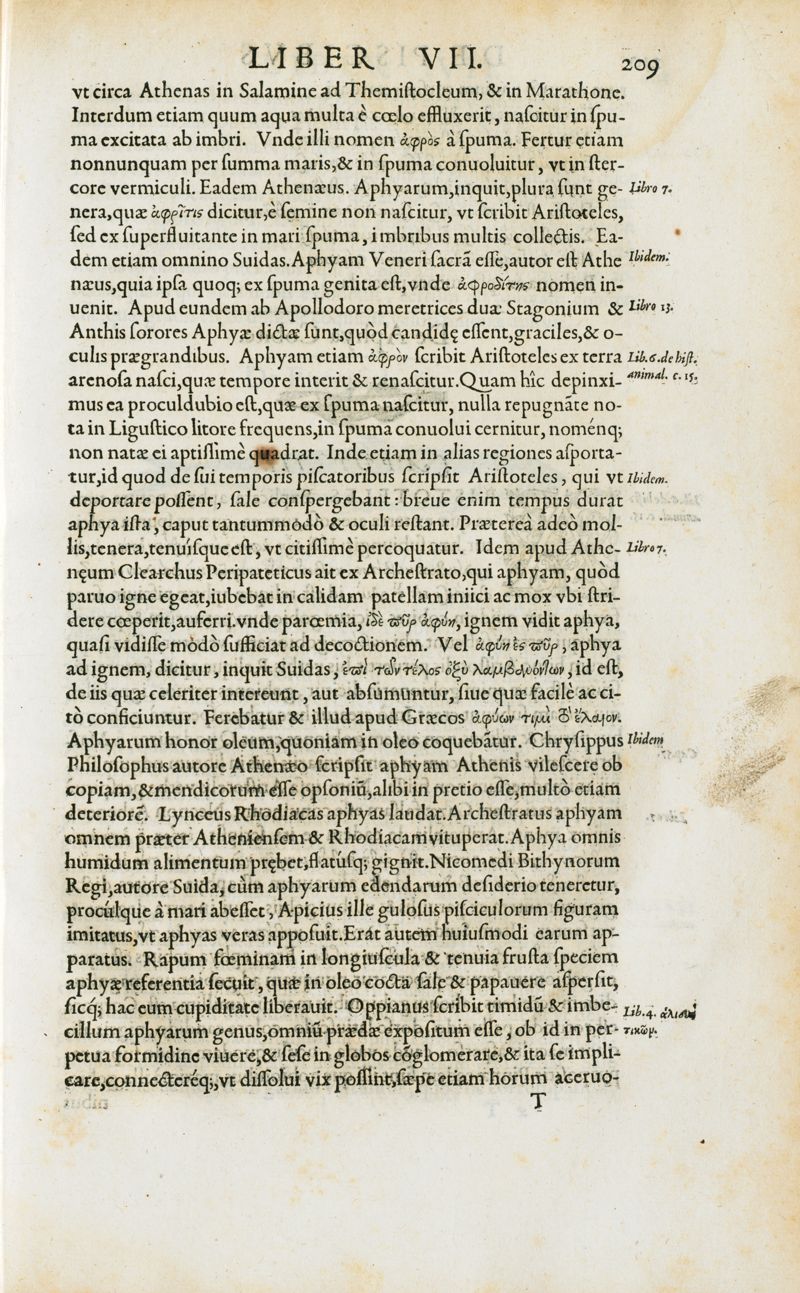 LIBER VII. 209
vt circa Athenas in Salamine ad Themiſtocleum, & in Marathone.
Interdum etiam quum aqua multa è cœlo effluxerit, naſcitur in ſpu-
ma excitata ab imbri. Vnde illi nomen ἀφρὸς à ſpuma. Fertur etiam
nonnunquam per ſumma maris,& in ſpuma conuoluitur, vt in ſter-
core vermiculi. Eadem Athenæus. Aphyarum,inquit,plura ſunt ge- Libro 7.
nera,quæ ἀφρῖτις dicitur,è ſemine non naſcitur, vt ſcribit Ariſtoteles,
ſed ex ſuperfluitante in mari ſpuma, imbribus multis collectis. Ea-
dem etiam omnino Suidas. Aphyam Veneri ſacrā eſſe,autor eſt Athe Ibidem.
næus,quia ipſa quoq; ex ſpuma genita eſt,vnde ἀφροδίτης nomen in-
uenit. Apud eundem ab Apollodoro meretrices duæ Stagonium & Libro 13.
Anthis ſorores Aphyæ dictæ ſunt,quòd candidę eſſent,graciles,& o-
culis prægrandibus. Aphyam etiam ἀφρὸν ſcribit Ariſtoteles ex terra Lib.6.de hiſt.
arenoſa naſci,quæ tempore interit & renaſcitur. Quam hîc depinxi- animal. c. 15.
mus ea proculdubio eſt,quæ ex ſpuma naſcitur, nulla repugnāte no-
ta in Liguſtico litore frequens,in ſpuma conuolui cernitur, noménq;
non natæ ei aptiſſimè quadrat. Inde etiam in alias regiones aſporta-
tur,id quod de ſui temporis piſcatoribus ſcripſit Ariſtoteles, qui vt Ibidem.
deportare poſſent, ſale conſpergebant: breue enim tempus durat
aphya iſta, caput tantummodò & oculi reſtant. Præterea adeò mol-
lis,tenera,tenuíſque eſt, vt citiſſimè percoquatur. Idem apud Athe- Libro 7.
nęum Clearchus Peripateticus ait ex Archeſtrato,qui aphyam, quòd
paruo igne egeat,iubebat in calidam patellam iniici ac mox vbi ſtri-
dere cœperit,auferri.vnde parœmia, ἰδὲ πῦρ ἀφύη, ignem vidit aphya,
quaſi vidiſſe modò ſufficiat ad decoctionem. Vel ἀφύη ἐς πῦρ, aphya
ad ignem, dicitur, inquit Suidas, ἐπὶ τῶν τέλος ὀξὺ λαμβανόντων, id eſt,
de iis quæ celeriter intereunt, aut abſumuntur, ſiue quæ facilè ac ci-
tò conficiuntur. Ferebatur & illud apud Græcos ἀφύων τιμὴ τ' ἔλαιον.
Aphyarum honor oleum,quoniam in oleo coquebātur. Chryſippus Ibidem
Philoſophus autore Athenæo ſcripſit aphyam Athenis vileſcere ob
copiam,& mendicorum eſſe opſoniū,alibi in pretio eſſe,multò etiam
deteriorē. Lynceus Rhodiacas aphyas laudat. Archeſtratus aphyam
omnem præter Athenienſem & Rhodiacam vituperat. Aphya omnis
humidum alimentum prębet,flatúſq; gignit. Nicomedi Bithynorum
Regi,autore Suida, cùm aphyarum edendarum deſiderio teneretur,
proculque à mari abeſſet, Apicius ille guloſus piſciculorum figuram
imitatus,vt aphyas veras appoſuit. Erat autem huiuſmodi earum ap-
paratus. Rapum fœminam in longiuſcula & tenuia fruſta ſpeciem
aphyæ referentia ſecuit, quæ in oleo cocta ſale & papauere aſperſit,
ſicq; hac eum cupiditate liberauit. Oppianus ſcribit timidū & imbe- Lib.4. ἁλιευ
cillum aphyarum genus,omniū prædæ expoſitum eſſe, ob id in per- τικῶν.
petua formidine viuere,& ſeſe in globos cōglomerare,& ita ſe impli-
care,connecteréq;,vt diſſolui vix poſſint,ſæpe etiam horum aceruo-
T